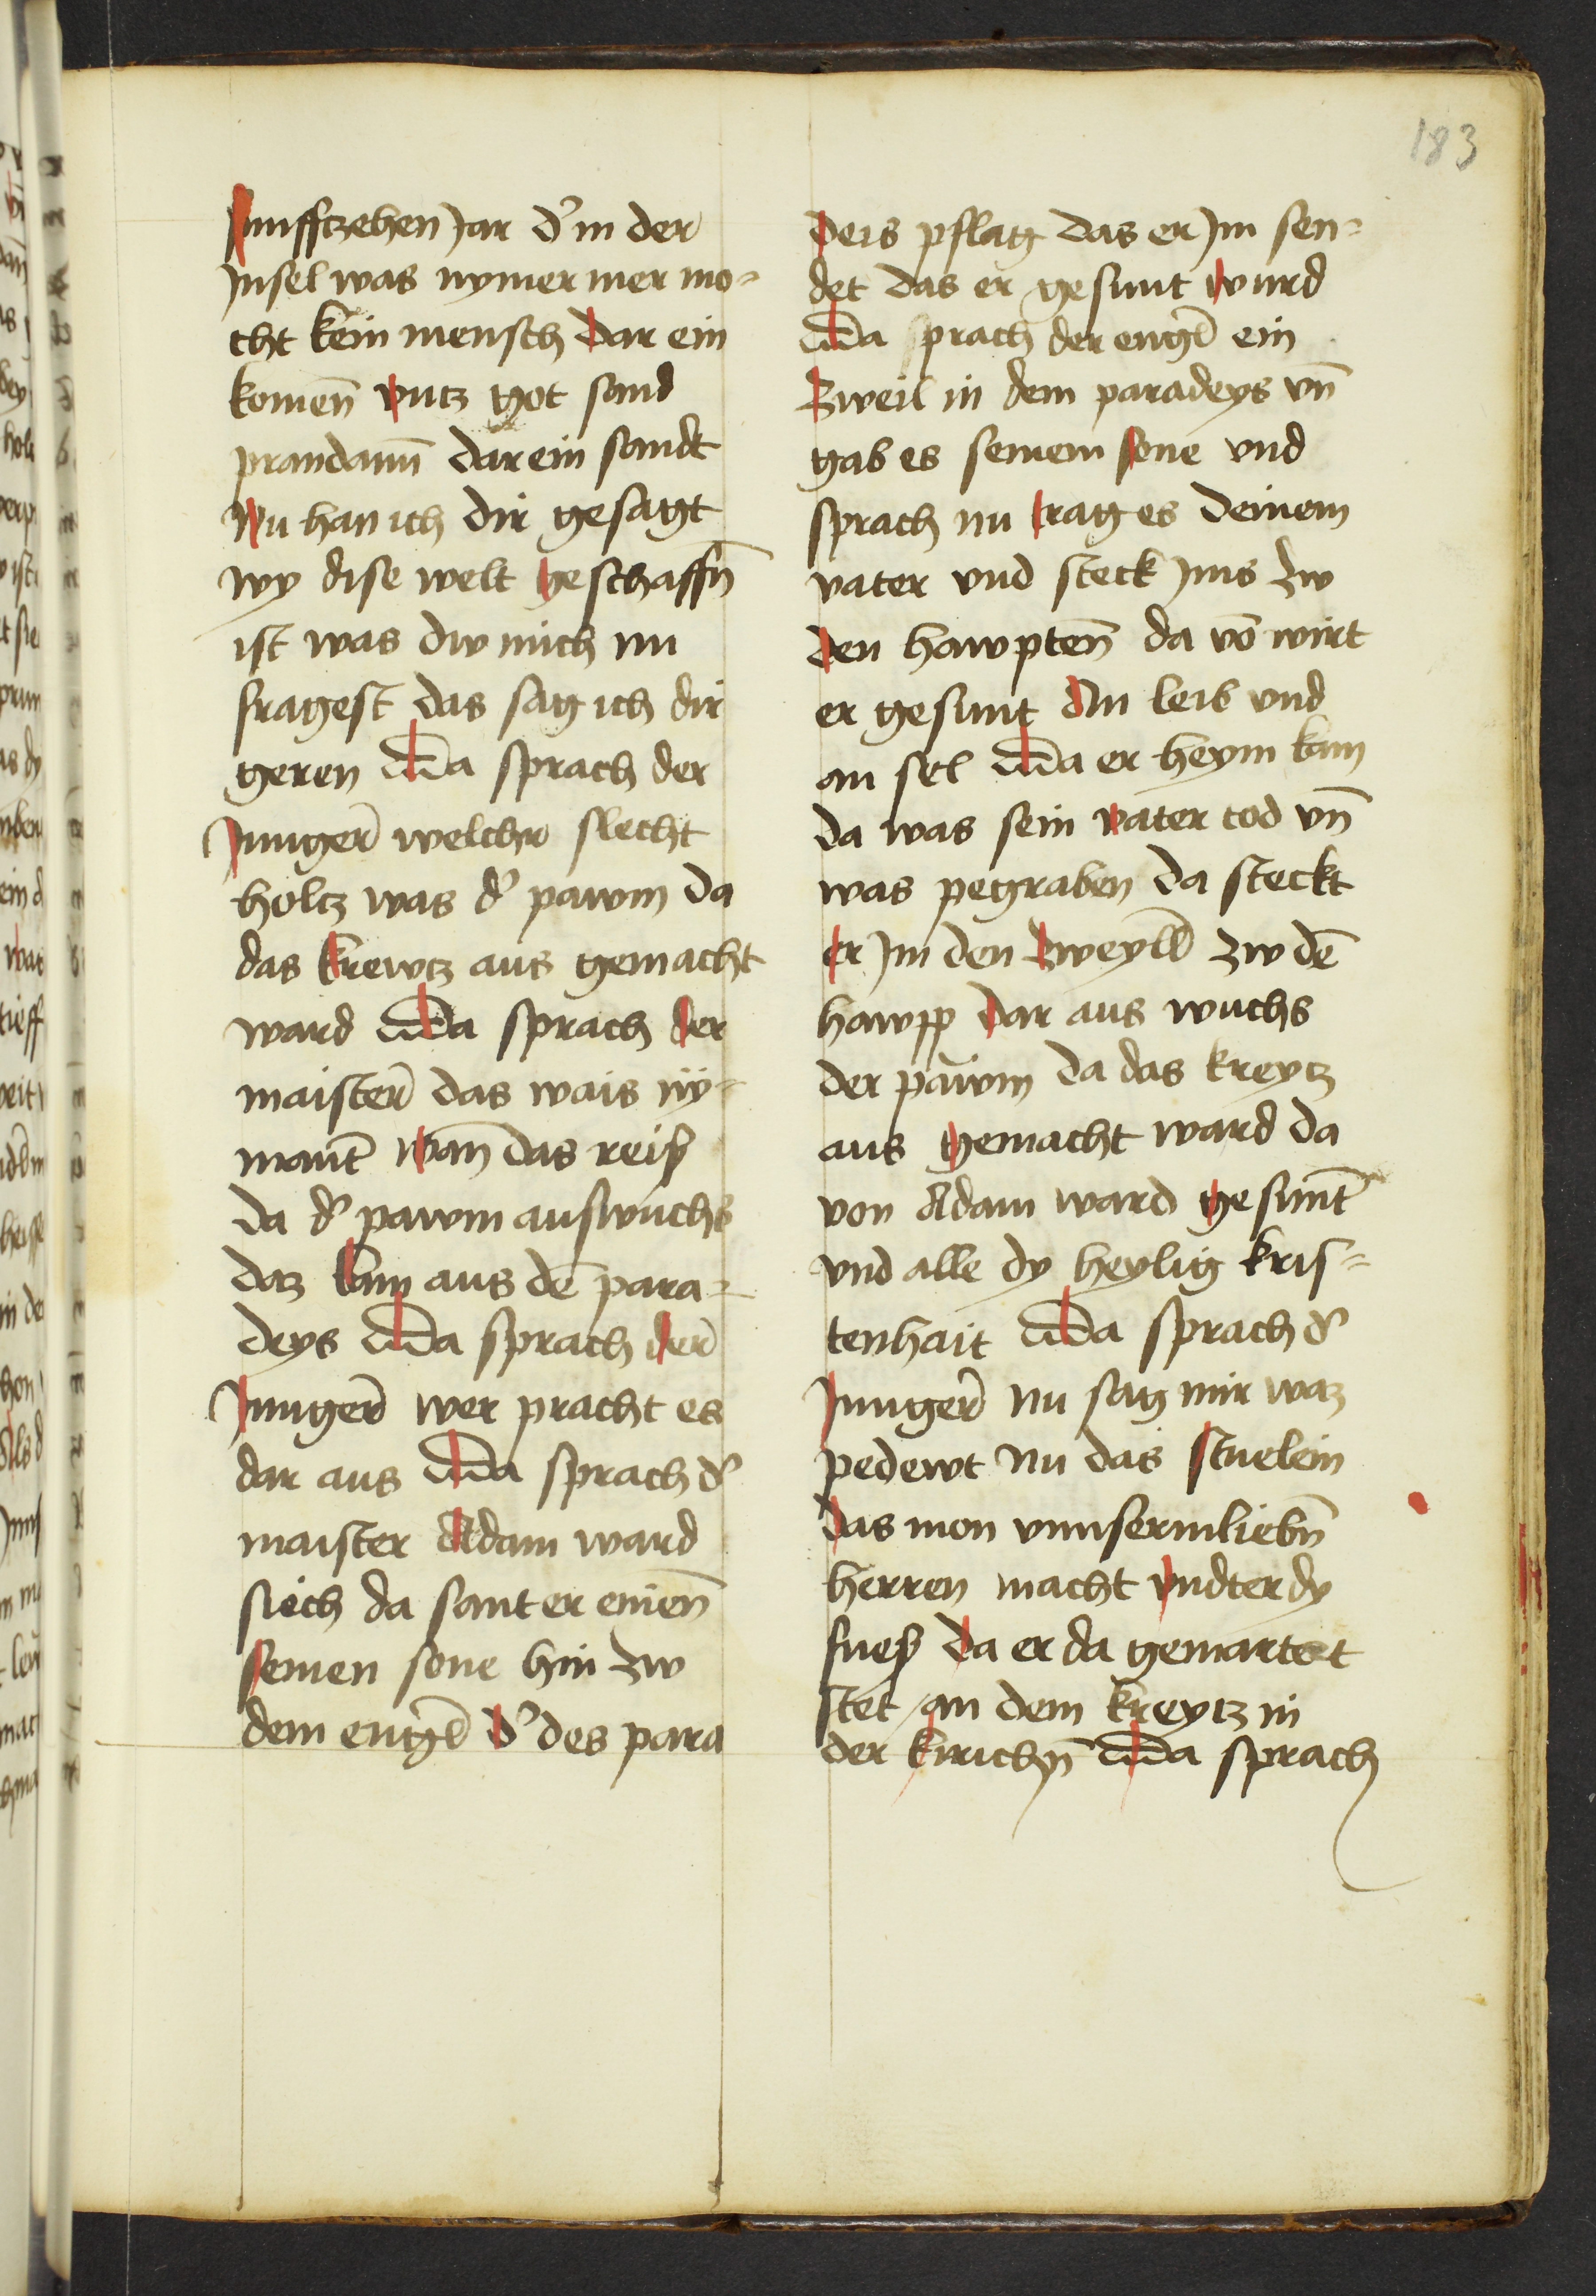 183
funfftzehen Jar d͛ in der
Jnsel was nymer mer mo=
cht kein mensch dar ein
komen̄ vntz got sand
prandann̄ dar ein sandt
Nu han ich dir gesagt
wy dise welt geschaffn̄
ist was dw mich nu
fragest das sag ich dir
geren Da sprach der
Junger̄ welchr slecht
holtz was d͛ pawm da
das krewtz aus gemacht
ward Da sprach der
maister̄ das wais ny=
mant̄ wan̄ das reiß
da d͛ pawm aus wuchs
daz kam aus dē para=
deys Da sprach der̄
Junger̄ wer pracht es
dar aus Da sprach d͛
maister Adam ward
siech da sant er einen̄
seinen sone hin zw
dem engl̄ d͛ des para
deis pflag das er Jm sen=
det das er gesunt wurd
Da sprach der engl̄ ein
zweil in dem paradeys vn̄
gab es seinem sone vnd
sprach nu trag es deinem
vater vnd steck Jms zw
den hawpten̄ da vō wirt
er gesunt An leib vnd
an sel Da er heym kam
da was sein vater tod vn̄
was pegraben da steckt
er Jm den zweyll̄ zw dē
hawpp dar aus wuchs
der pawm da das kreytz
aus gemacht ward da
von Adam ward gesunt̄
vnd alle dy heylig kris=
tenhait Da sprach d͛
Junger̄ nu sag mir waz
pedewt nu das stuelein
das mon vnnserm liebn̄
herren macht vndter dy
fueß da er da gemartert
stet an dem kreytz in
der kirichn̄ Da sprach